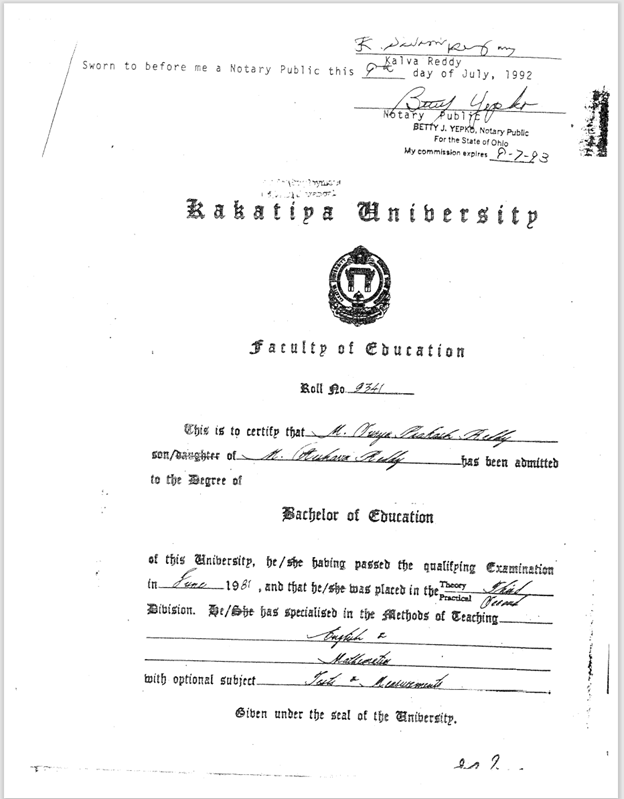 Kalva Reddy
Sworn to before me a Notary Public this 9th day of July, 1992
Betty Yepko
Notary Public
BETTY J. YEPKO, Notary Public
For the State of Ohio
My commission expires 9-7-93
Kakatiya University
Faculty of Education
Roll No 9341
This is to certify that M. Prakash Reddy
son/daughter of M. Reddy has been admitted
to the Degree of
Bachelor of Education
of this University, he/she having passed the qualifying Examination
in June 1981, and that he/she was placed in the Theory Third
Practical Second
Division. He/She has specialised in the Methods of Teaching
English &
Mathematics
with optional subject Tests & Measurements
Given under the seal of the University.